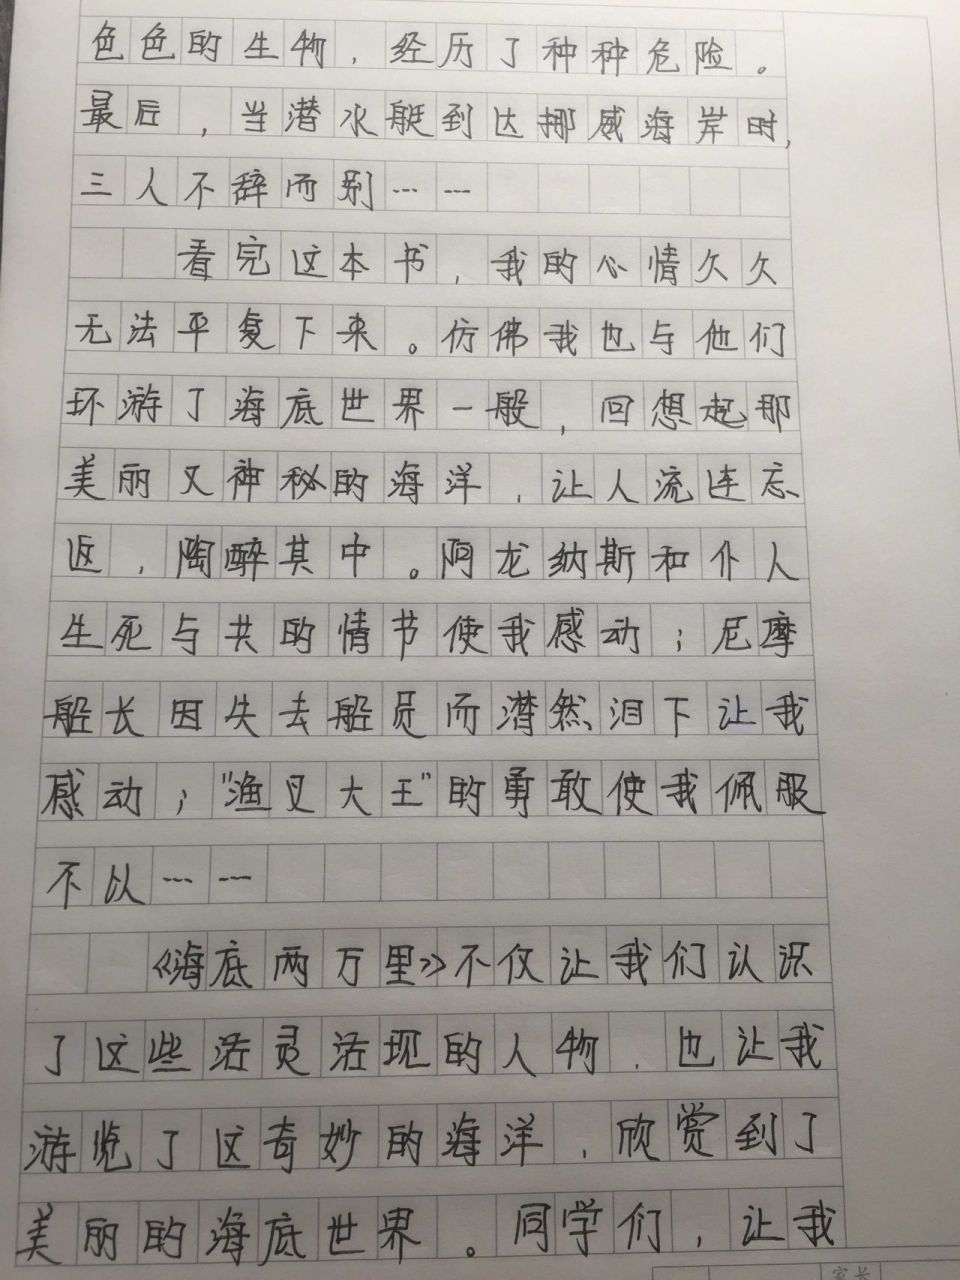 色色的生物，经历了种种危险。
最后，当潜水艇到达挪威海岸时，
三人不辞而别……
看完这本书，我的心情久久
无法平复下来。仿佛我也与他们
环游了海底世界一般，回想起那
美丽又神秘的海洋，让人流连忘
返，陶醉其中。阿龙纳斯和仆人
生死与共的情节使我感动；尼摩
船长因失去船员而潸然泪下让我
感动；“渔叉大王”的勇敢使我佩服
不以……
《海底两万里》不仅让我们认识
了这些活灵活现的人物，也让我
游览了这奇妙的海洋，欣赏到了
美丽的海底世界。同学们，让我
家长